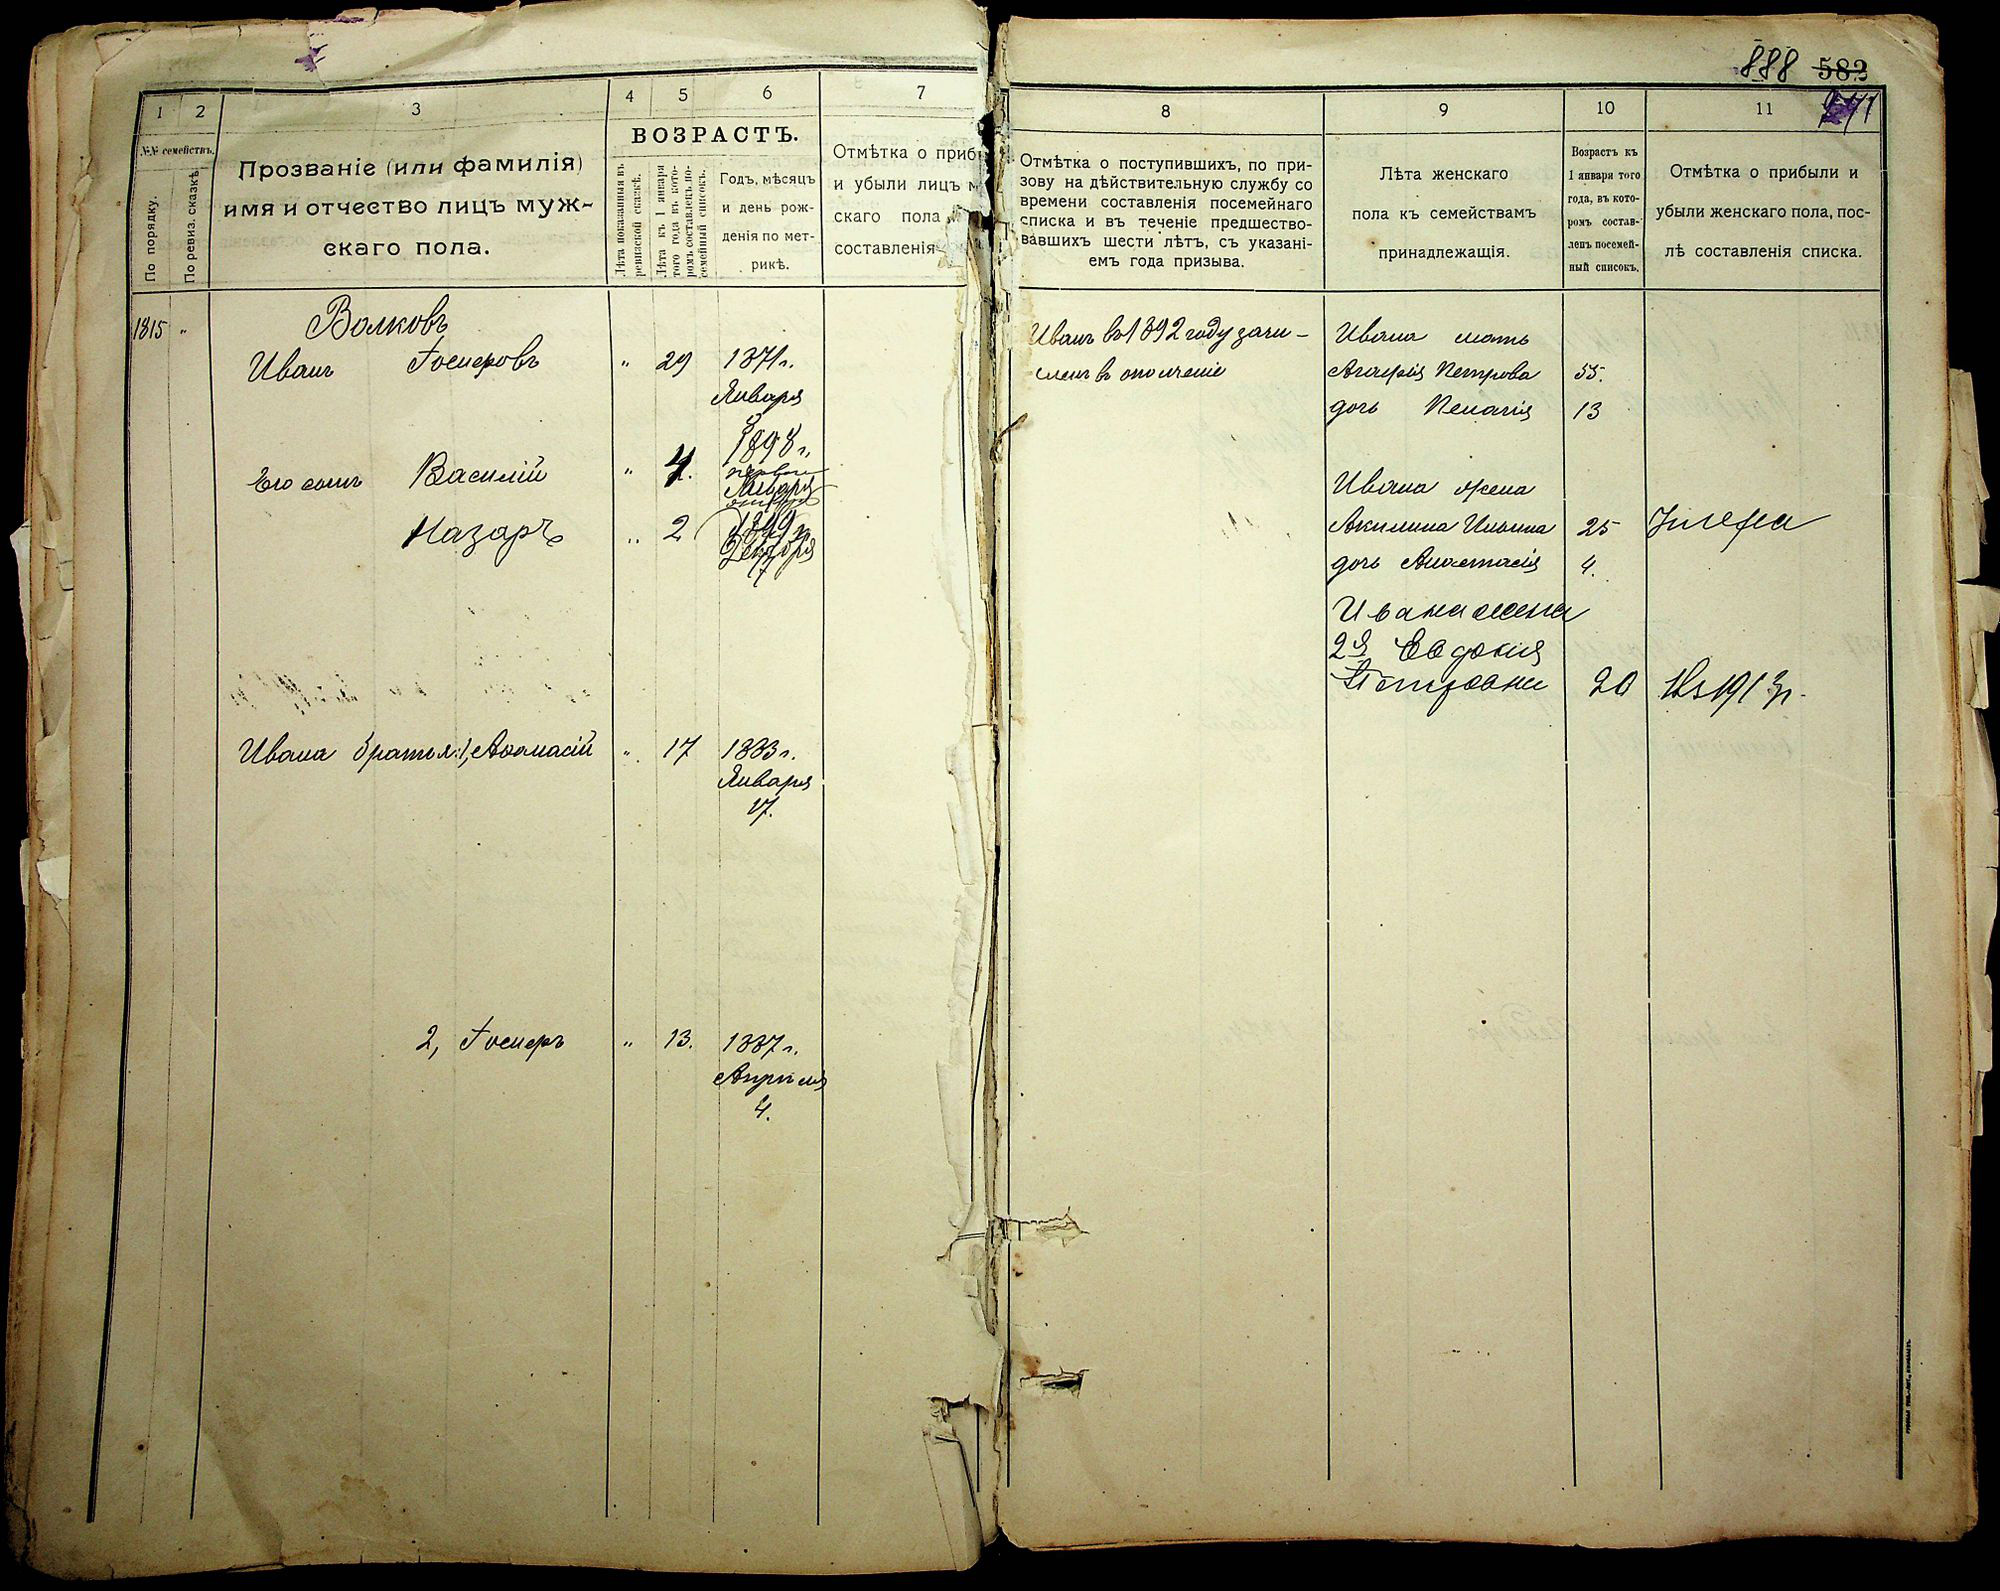 888 583
1 2 3 4 5 6 7
№№ семействъ.
По порядку.
По ревиз. сказкѣ.
Прозваніе (или фамилія)
имя и отчество лицъ муж-
скаго пола.
ВОЗРАСТЪ.
Лѣта показанныя въ
ревизской сказкѣ.
Лѣта къ 1 января
того года въ кото-
ромъ составленъ по-
семейный списокъ.
Годъ, мѣсяцъ
и день рож-
денія по мет-
рикѣ.
Отмѣтка о приб
и убыли лицъ м
скаго пола
составленія
8 9 10 11
Отмѣтка о поступившихъ, по при-
зову на дѣйствительную службу со
времени составленія посемейнаго
списка и въ теченіе предшество-
вавшихъ шести лѣтъ, съ указані-
емъ года призыва.
Лѣта женскаго
пола къ семействамъ
принадлежащія.
Возрастъ къ
1 января того
года, въ кото-
ромъ состав-
ленъ посемей-
ный списокъ.
Отмѣтка о прибыли и
убыли женскаго пола, пос-
лѣ составленія списка.
1815 "
Волковъ
Иванъ Іосифовъ " 29 1871 г.
Января
Его сынъ Василій " 4. 1898 г.
Января
Назаръ " 2 1899 г.
Декабря
17
Ивана братья: 1, Афанасій " 17 1883 г.
Января
17.
2, Іосифъ " 13. 1887 г.
Апрѣля
4.
Иванъ въ 1892 году зачи-
сленъ в ополченіе
Ивана мать
Агафія Петрова 55.
дочь Пелагія 13
Ивана жена
Акилина Ильина 25 Умерла
дочь Анастасія 4.
Ивана жена
2я Евдокия
Петровна 20 Въ 1913 г.